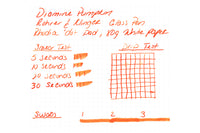 Diamine Pumpkin
Rohrer & Klingner Glass Pen
Rhodia Dot Pad, 80g White Paper
Smear Test
Drip Test
5 Seconds
10 Seconds
20 Seconds
30 Seconds
Swabs
1 2 3